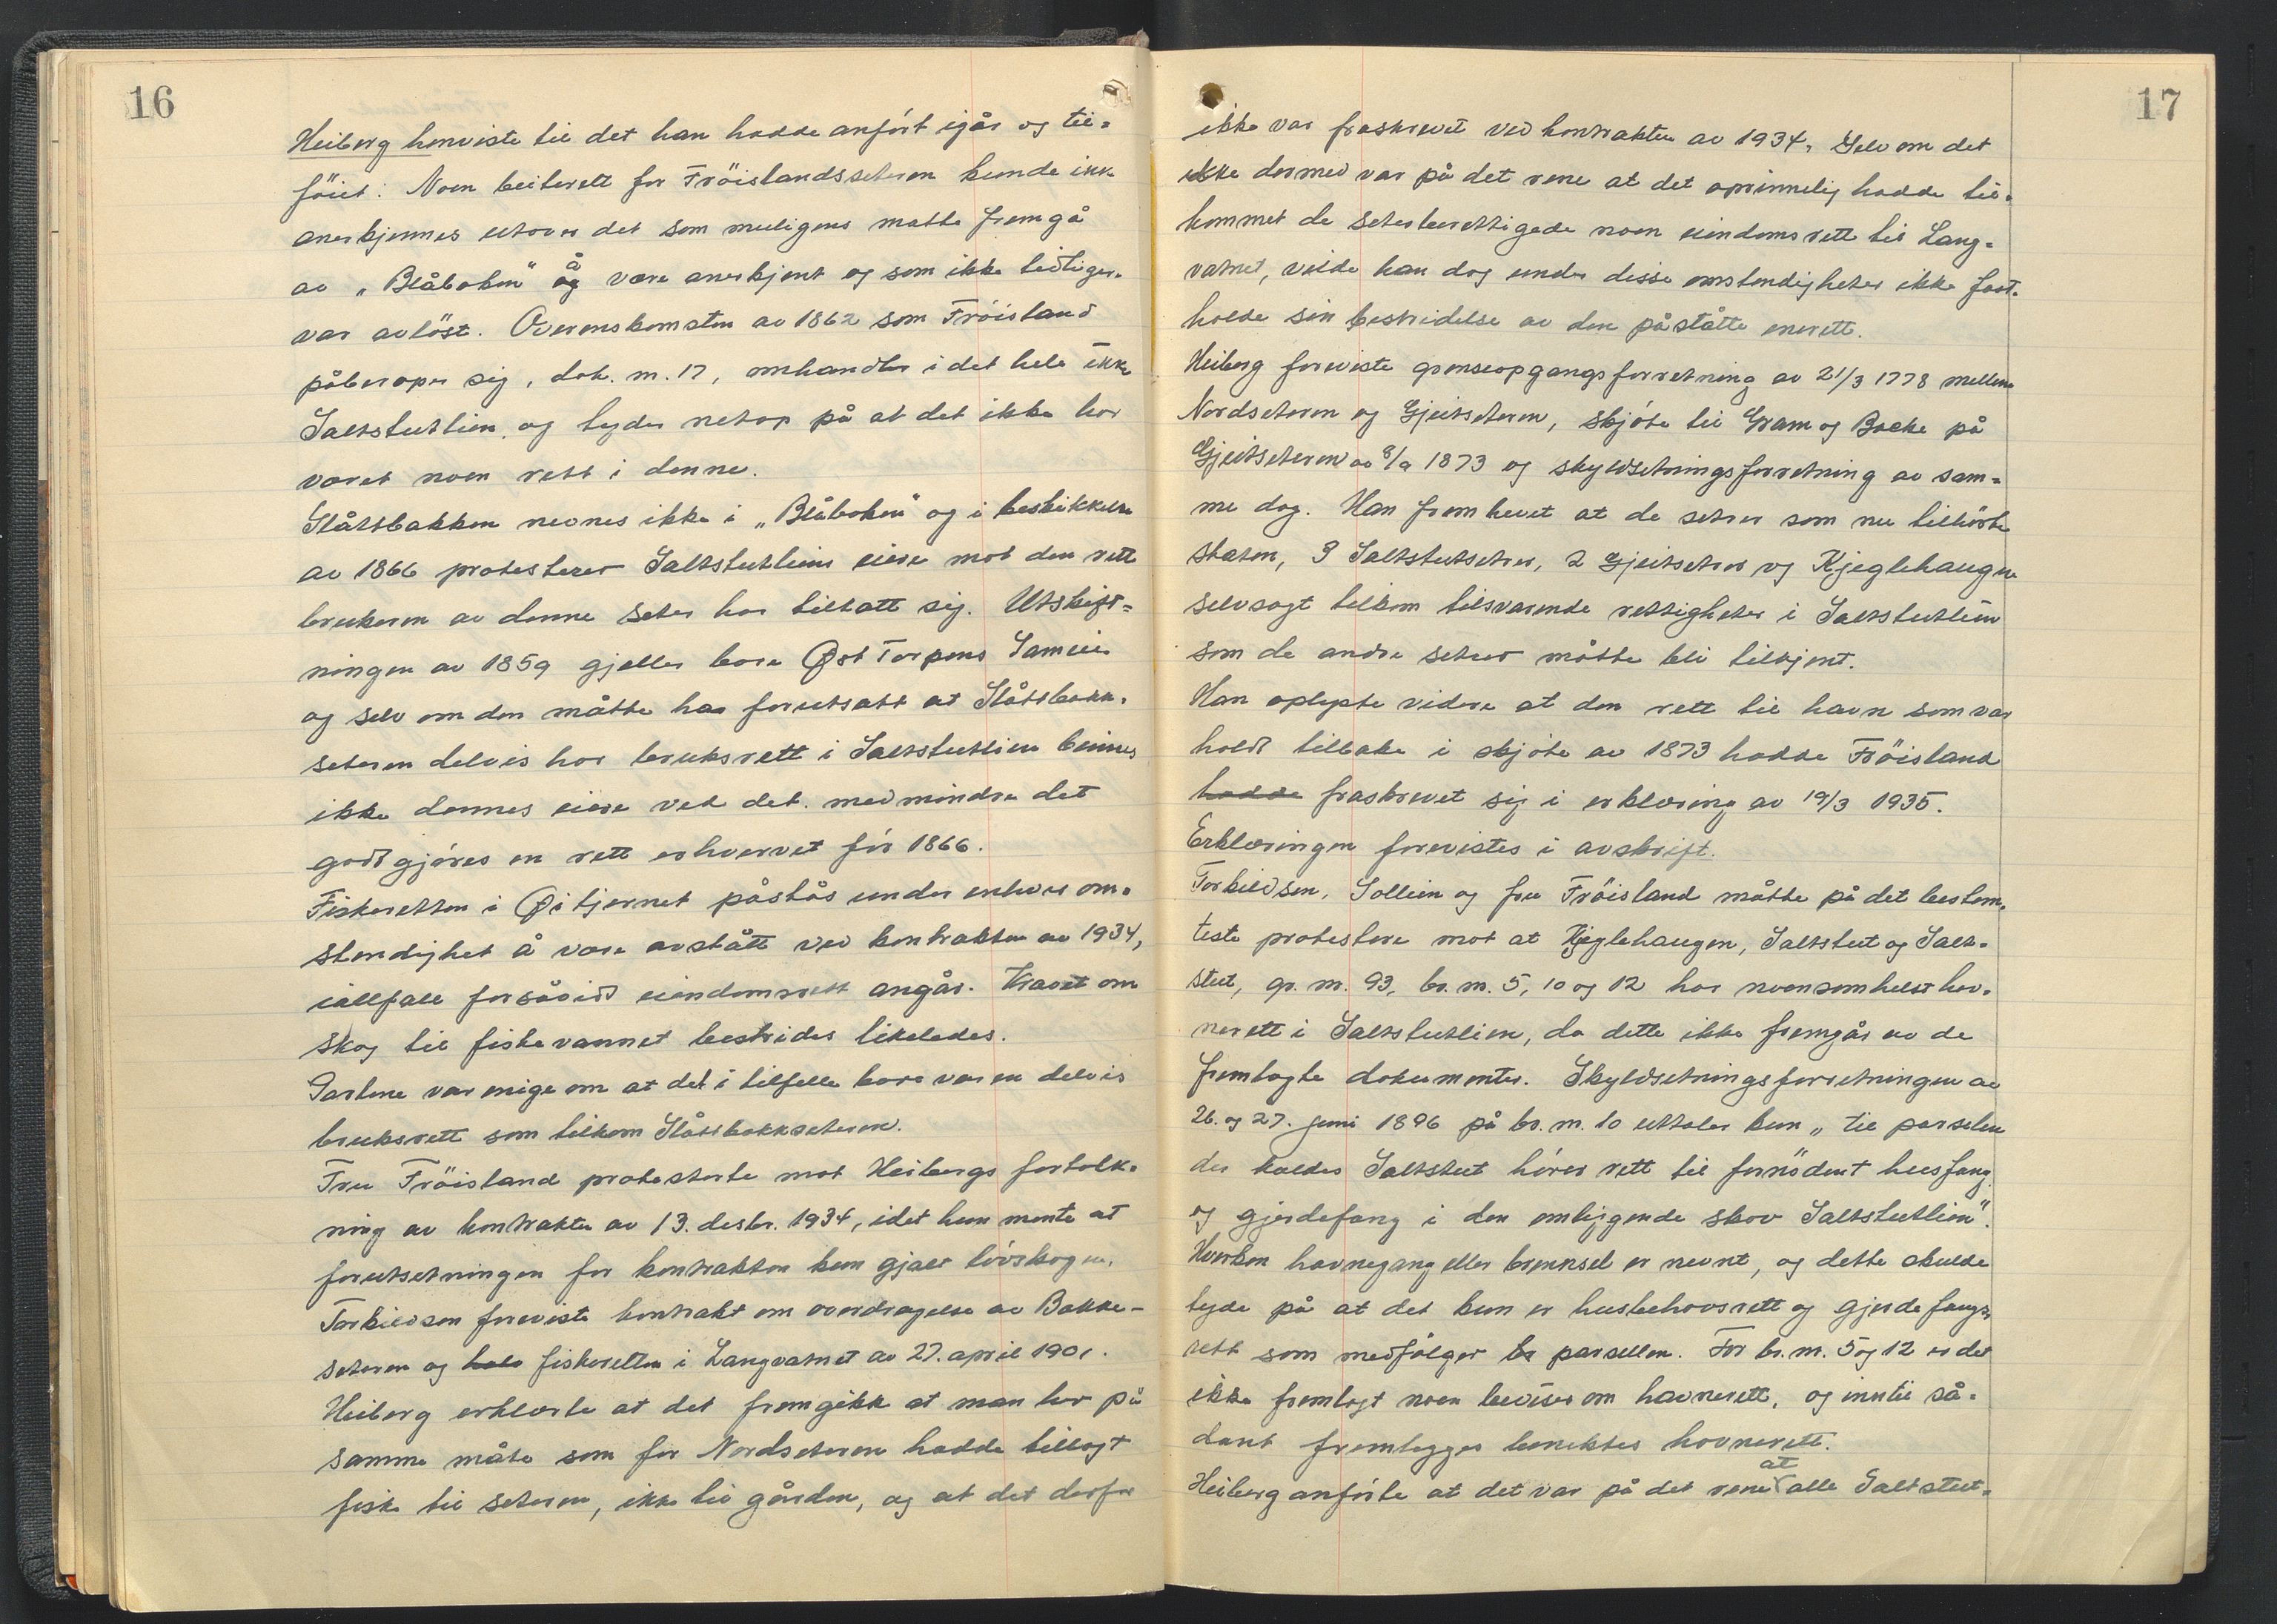 16
Heiberg henviste til det han hadde anført igår og til=
föiet: Noen beiterett for Fröislandsseteren kunde ikke
anerkjennes utover det som muligens måtte fremgå
av „Blåboken" å være anerkjent og som ikke tidligere
var avlöst. Overenskomsten av 1862 som Fröisland
påberoper sig, dok. nr. 17, omhandler i det hele ikke
Saltstutlien og tyder netop på at det ikke har
været noen rett i denne.
Slåttbakken nevnes ikke i „Blåboken" og i beskikkelse
av 1866 protesterer Saltstutliens eiere mot den rett
brukeren av denne seter har tiltatt sig. Utskift=
ningen av 1859 gjelder bare Øst Torpens Sameie
og selv om den måtte ha forutsatt at Slåttbakk=
seteren delvis har bruksrett i Saltstutlien bindes
ikke dennes eiere ved det. medmindre det
godtgjøres en rett erhvervet før 1866.
Fiskeretten i Øitjernet påstås under enhver om=
stendighet å være avstått ved kontrakten av 1934,
iallfall forsåvidt eiendomsrett angår. Kravet om
skog til fiskevannet bestrides likeledes.
Partene var enige om at det i tilfelle bare var en delvis
bruksrett som tilkom Slåttbakkseteren.
Fru Fröisland protesterte mot Heibergs fortolk=
ning av kontrakten av 13. desbr. 1934, idet hun mente at
forutsetningen for kontrakten kun gjalt lövskogen.
Torkildsen foreviste kontrakt om overdragelse av Bakke-
seteren og halv fiskeretten i Langvatnet av 27. april 1901.
Heiberg erklærte at det fremgikk at man her på
samme måte som for Nordseteren hadde tillagt
fiske til seteren, ikke til gården, og at det derfor
17
ikke var fraskrevet ved kontrakten av 1934. Selv om det
ikke dermed var på det rene at det oprinnelig hadde til=
kommet de seterberettigede noen eiendomsrett til Lang=
vatnet, vilde han dog under disse omstendigheter ikke fast=
holde sin bestridelse av den påståtte enerett.
Heiberg foreviste grenseopgangsforretning av 21/3 1778 mellem
Nordseteren og Gjeitseteren, skjøte til Gram og Backe på
Gjeitseteren av 8/9 1873 og skyldsetningsforretning av sam=
me dag. Han fremhevet at de setrer som nu tilhörte
staten, 3 Saltstutsetrer, 2 Gjeitsetrer og Kjeglehaugen
selvsagt tilkom tilsvarende rettigheter i Saltstutlien
som de andre setrer måtte bli tilkjent.
Han oplyste videre at den rett til havn som var
holdt tilbake i skjøte av 1873 hadde Fröisland
hadde fraskrevet sig i erklæring av 19/3 1935.
Erklæringen forevistes i avskrift.
Torkildsen, Sollien og fru Fröisland måtte på det bestem=
teste protestere mot at Kjeglehaugen, Saltstut og Salt=
stut, gr. nr. 93, br. nr. 5, 10 og 12 har noensomhelst hav=
nerett i Saltstutlien, da dette ikke fremgår av de
fremlagte dokumenter. Skyldsetningsforretningen av
26. og 27. juni 1896 på br. nr. 10 uttaler kun „til parselen
der kaldes Saltstut hører rett til fornödent husfang
og gjerdefang i den omliggende skov Saltstutlien".
Hverken havnegang eller brensel er nevnt, og dette skulde
tyde på at det kun er husbehovsrett og gjerdefangs=
rett som medfölger br parsellen. For br. nr. 5 og 12 er det
ikke fremlagt noen beviser om havnerett, og inntil så=
dant fremlegges benektes havnerett.
Heiberg anførte at det var på det rene at alle Saltstut=